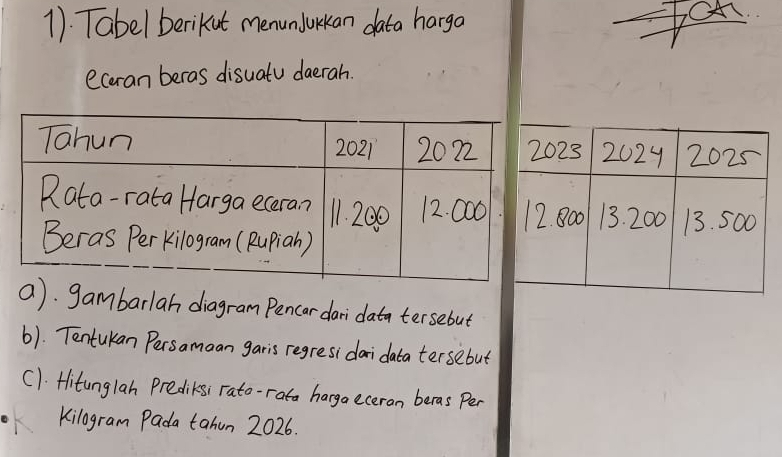 1). Tabel berikut menunjukkan data harga
eceran beras disuatu daerah.
Tahun 2021 2022 2023 2024 2025
Rata-rata Harga eceran
Beras Per Kilogram (Rupiah) 11.200 12.000 12.800 13.200 13.500
a). gambarlah diagram Pencar dari data tersebut
b). Tentukan Persamaan garis regresi dari data tersebut
c). Hitunglah Prediksi rata-rata harga eceran beras Per
Kilogram Pada tahun 2026.